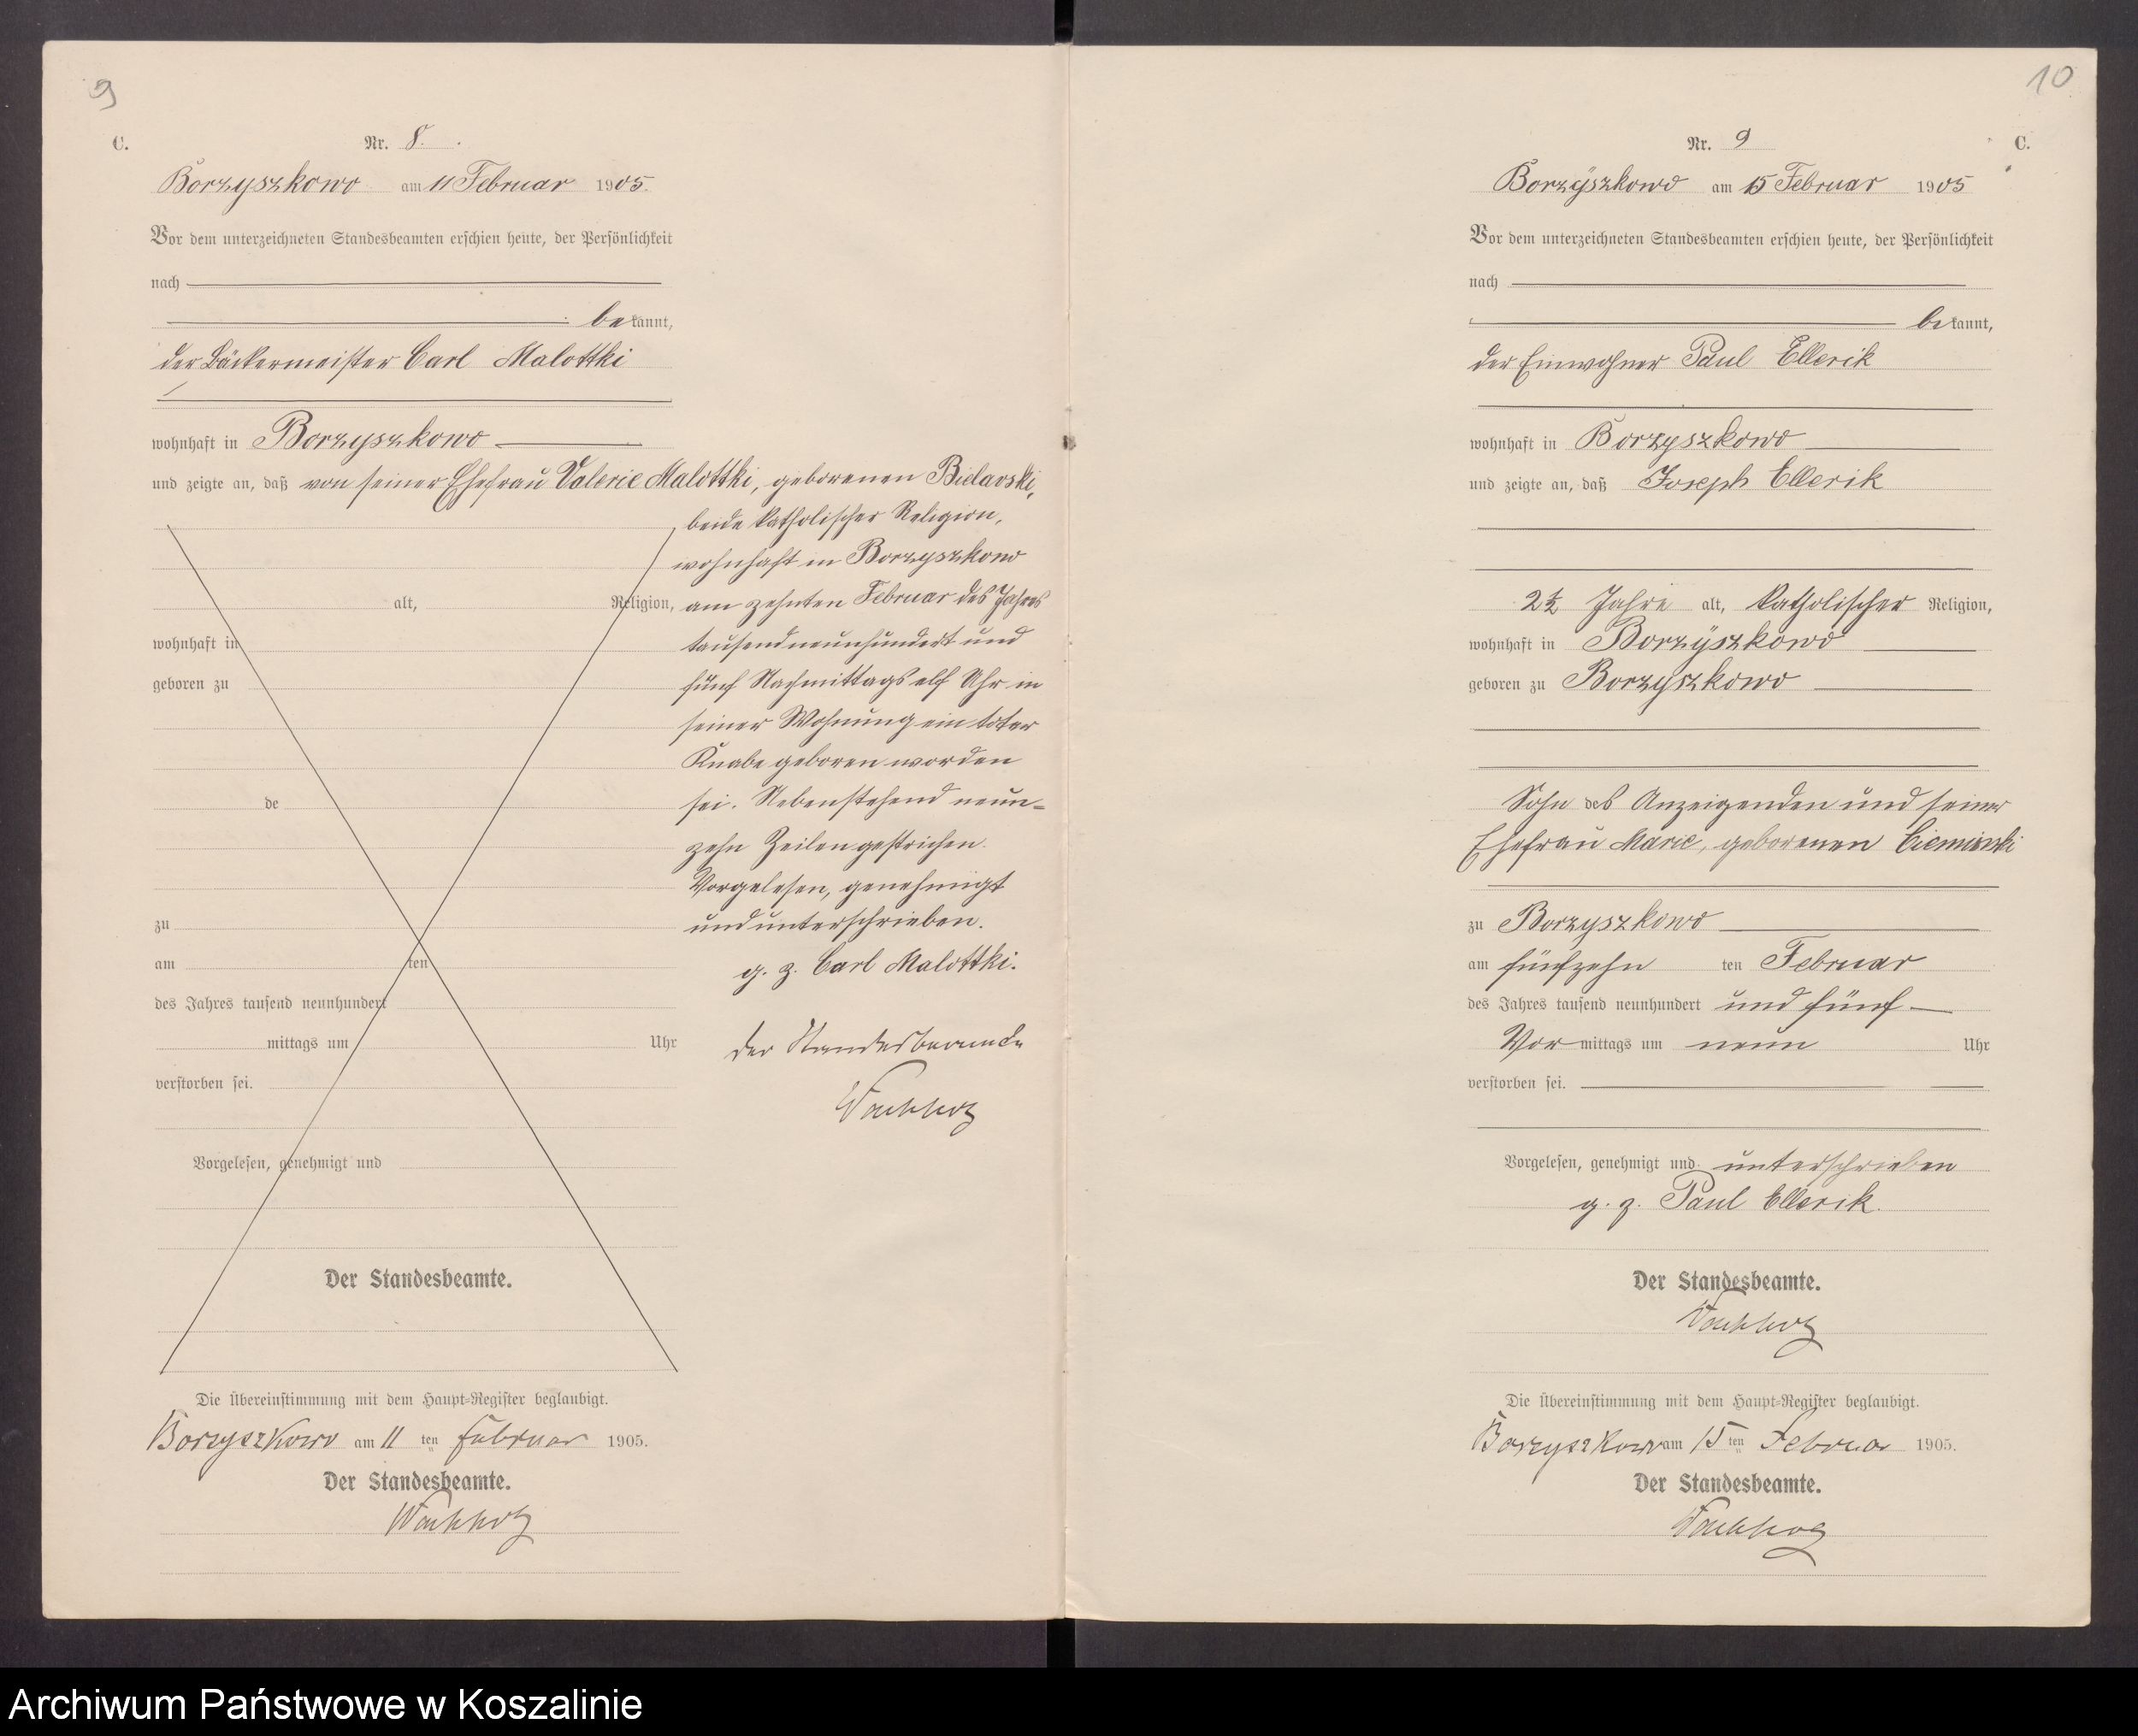 9
C.
Nr. 8.
Borzyszkowo am 11 Februar 1905.
Vor dem unterzeichneten Standesbeamten erschien heute, der Persönlichkeit
nach
bekannt,
der Bäckermeister Carl Malottki
wohnhaft in Borzyszkowo
und zeigte an, daß von seiner Ehefrau Valerie Malottki, geborenen Bielawski,
beide katholischer Religion,
wohnhaft in Borzyszkowo
alt, Religion, am zehnten Februar des Jahres
wohnhaft in tausendneunhundert und
geboren zu fünf Nachmittags elf Uhr in
seiner Wohnung ein toter
Knabe geboren worden
de sei. Nebenstehend neun=
zehn Zeilen gestrichen.
Vorgelesen, genehmigt
zu und unterschrieben.
am ten g. z. Carl Malottki.
des Jahres tausend neunhundert
mittags um Uhr der Standesbeamte
verstorben sei.
Vorgelesen, genehmigt und
Der Standesbeamte.
Die Übereinstimmung mit dem Haupt-Register beglaubigt.
Borzyszkowo am 11 ten Februar 1905.
Der Standesbeamte.
10
Nr. 9
C.
Borzyszkowo am 15 Februar 1905
Vor dem unterzeichneten Standesbeamten erschien heute, der Persönlichkeit
nach
bekannt,
der Einwohner Paul Ellerik
wohnhaft in Borzyszkowo
und zeigte an, daß Joseph Ellerik
2½ Jahre alt, katholischer Religion,
wohnhaft in Borzyszkowo
geboren zu Borzyszkowo
Sohn des Anzeigenden und seiner
Ehefrau Marie, geborenen
zu Borzyszkowo
am fünfzehn ten Februar
des Jahres tausend neunhundert und fünf
Vor mittags um neun Uhr
verstorben sei.
Vorgelesen, genehmigt und unterschrieben
g. z. Paul Ellerik.
Der Standesbeamte.
Die Übereinstimmung mit dem Haupt-Register beglaubigt.
Borzyszkowo am 15 ten Februar 1905.
Der Standesbeamte.
Archiwum Państwowe w Koszalinie